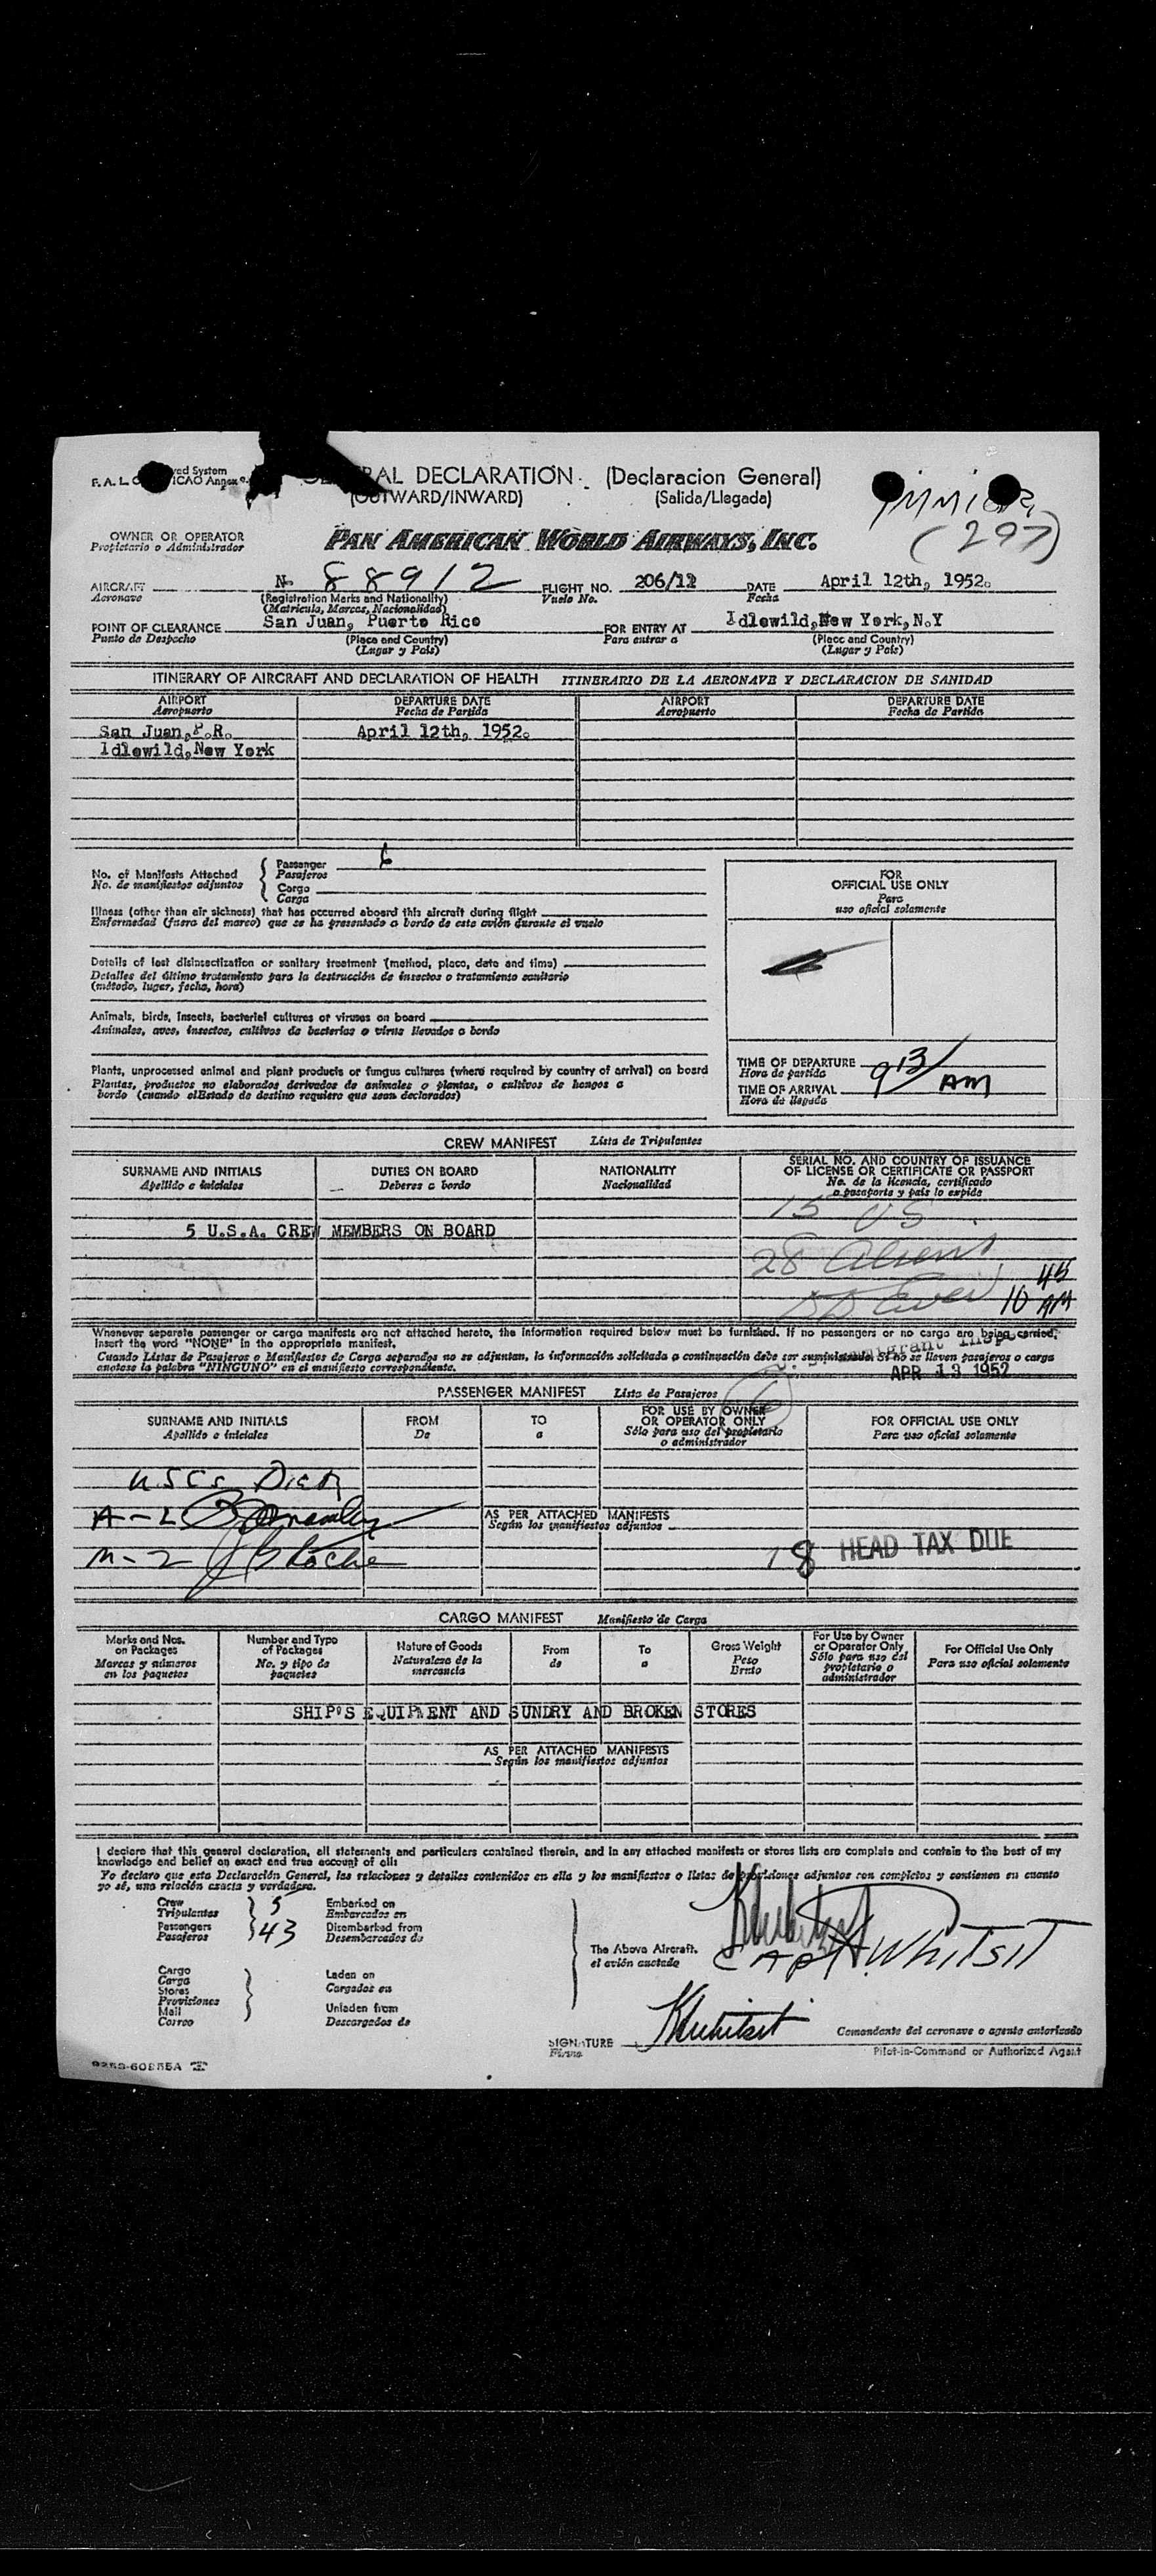 GENERAL DECLARATION. (Declaracion General)
(OUTWARD/INWARD) (Salida/Llegada)
(297)
OWNER OR OPERATOR
Propietario o Administrador
PAN AMERICAN WORLD AIRWAYS, INC.
AIRCRAFT No 88912 FLIGHT NO. 206/12 DATE April 12th, 1952.
Aeronave (Registration Marks and Nationality) Vuelo No. Fecha
(Matricula, Marcas, Nacionalidad)
POINT OF CLEARANCE San Juan, Puerto Rico FOR ENTRY AT Idlewild,New York,N.Y
Punto de Despacho (Place and Country) Para entrar a (Place and Country)
(Lugar y País) (Lugar y País)
ITINERARY OF AIRCRAFT AND DECLARATION OF HEALTH ITINERARIO DE LA AERONAVE Y DECLARACION DE SANIDAD
AIRPORT DEPARTURE DATE AIRPORT DEPARTURE DATE
Aeropuerto Fecha de Partida Aeropuerto Fecha de Partida
San Juan,P.R. April 12th, 1952.
Idlewild,New York
No. of Manifests Attached Passenger 6
No. de manifiestos adjuntos Pasajeros
Cargo
Carga
Illness (other than air sickness) that has occurred aboard this aircraft during flight
Enfermedad (fuera del mareo) que se ha presentado a bordo de este avión durante el vuelo
Details of last disinsectization or sanitary treatment (method, place, date and time)
Detalles del último tratamiento para la destrucción de insectos o tratamiento sanitario
(método, lugar, fecha, hora)
Animals, birds, insects, bacterial cultures or viruses on board
Animales, aves, insectos, cultivos de bacterias o virus llevados a bordo
Plants, unprocessed animal and plant products or fungus cultures (where required by country of arrival) on board
Plantas, productos no elaborados derivados de animales o plantas, o cultivos de hongos a
bordo (cuando el Estado de destino requiere que sean declarados)
FOR
OFFICIAL USE ONLY
Para
uso oficial solamente
TIME OF DEPARTURE
Hora de partida
TIME OF ARRIVAL 9 13/ AM
Hora de llegada
CREW MANIFEST Lista de Tripulantes
SURNAME AND INITIALS DUTIES ON BOARD NATIONALITY SERIAL NO. AND COUNTRY OF ISSUANCE
OF LICENSE OR CERTIFICATE OR PASSPORT
Apellido e iniciales Deberes a bordo Nacionalidad No. de la licencia, certificado
o pasaporte y país lo expide
15 US
5 U.S.A. CREW MEMBERS ON BOARD
28 Aliens
10 45 AM
Whenever separate passenger or cargo manifests are not attached hereto, the information required below must be furnished. If no passengers or no cargo are being carried,
insert the word "NONE" in the appropriate manifest.
Cuando Listas de Pasajeros o Manifiestos de Carga separados no se adjuntan, la información solicitada a continuación debe ser suministrada Si no se lleven pasajeros o carga
anótese la palabra "NINGUNO" en el manifiesto correspondiente.
APR 13 1952
PASSENGER MANIFEST Lista de Pasajeros 6
SURNAME AND INITIALS FROM TO FOR USE BY OWNER
OR OPERATOR ONLY FOR OFFICIAL USE ONLY
Apellido e iniciales De a Sólo para uso del propietario
o administrador Para uso oficial solamente
AS PER ATTACHED MANIFESTS
Según los manifiestos adjuntos
M-2
18 HEAD TAX DUE
CARGO MANIFEST Manifiesto de Carga
Marks and Nos.
on Packages
Marcas y números
en los paquetes
Number and Type
of Packages
No. y tipo de
paquetes
Nature of Goods
Naturaleza de la
mercancía
From
de
To
a
Gross Weight
Peso
Bruto
For Use by Owner
or Operator Only
Sólo para uso del
propietario o
administrador
For Official Use Only
Para uso oficial solamente
SHIP'S EQUIPMENT AND SUNDRY AND BROKEN STORES
AS PER ATTACHED MANIFESTS
Según los manifiestos adjuntos
I declare that this general declaration, all statements and particulars contained therein, and in any attached manifests or stores lists are complete and contain to the best of my
knowledge and belief an exact and true account of all:
Yo declaro que esta Declaración General, las relaciones y detalles contenidos en ella y los manifiestos o listas de provisiones adjuntos son completos y contienen en cuanto
yo sé, una relación exacta y verdadera.
Crew 5 Embarked on
Tripulantes Embarcados en
Passengers 43 Disembarked from
Pasajeros Desembarcados de
The Above Aircraft.
el avión anotado
CAPT WHITSIT
Cargo
Carga
Stores
Provisiones
Mail
Correo
Laden on
Cargados en
Unladen from
Descargados de
SIGNATURE K Whitsit
Firma
Comandante del aeronave o agente autorizado
Pilot-in-Command or Authorized Agent